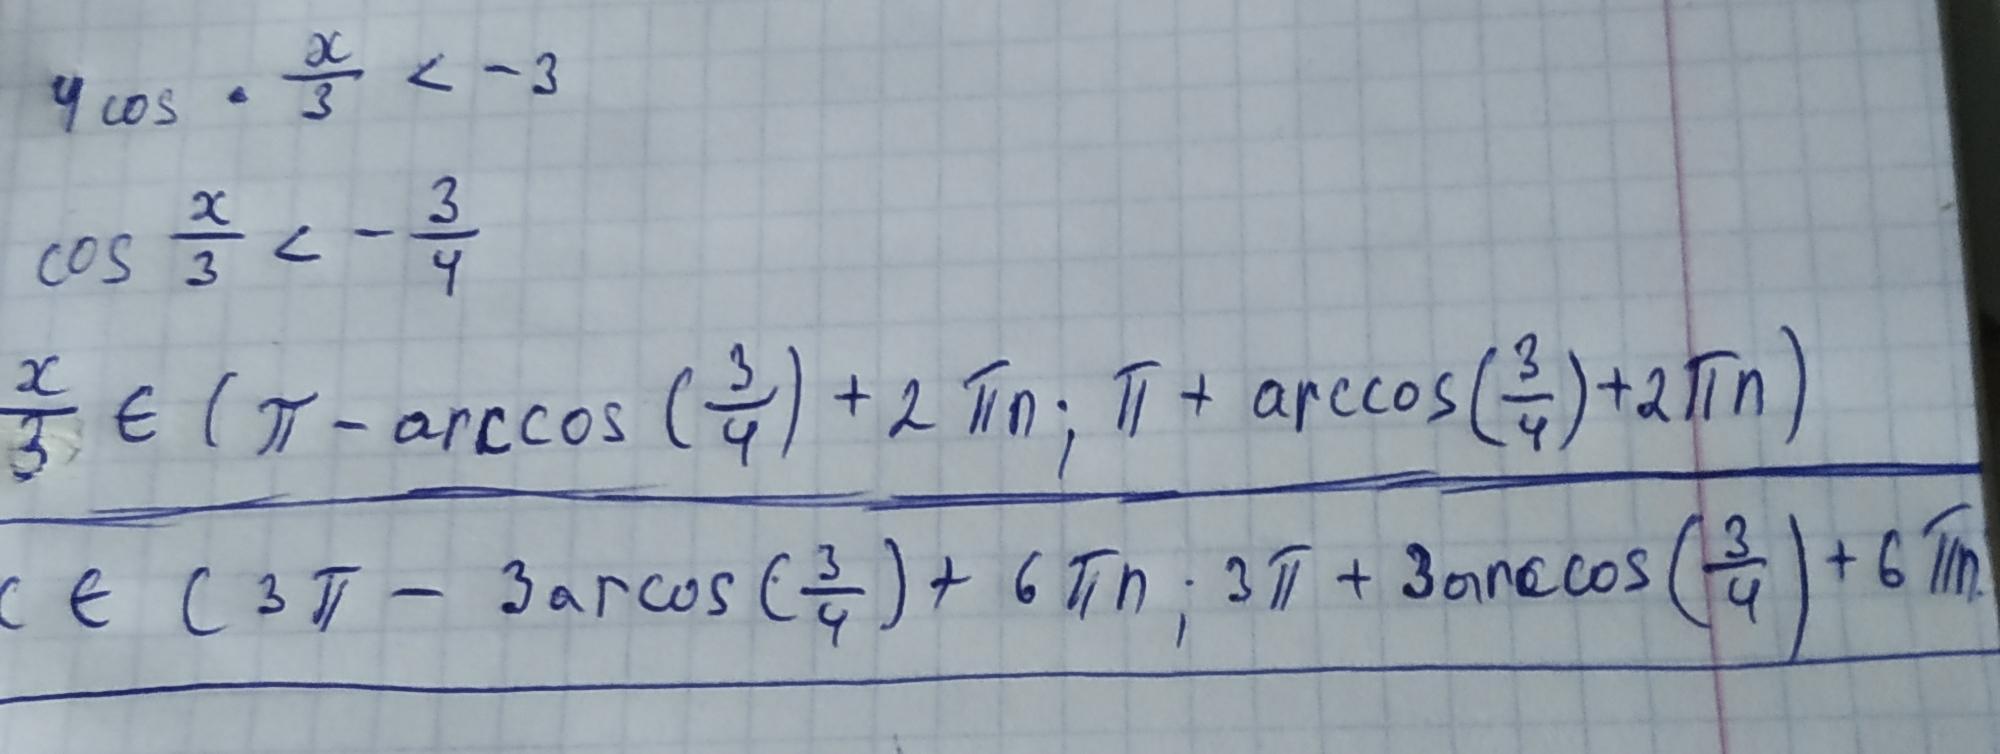 4 cos · x/3 < -3
cos x/3 < - 3/4
x/3 ∈ (π - arccos (3/4) + 2πn; π + arccos(3/4)+2πn)
∈ (3π - 3arcos (3/4) + 6πn; 3π + 3arccos (3/4) + 6πn